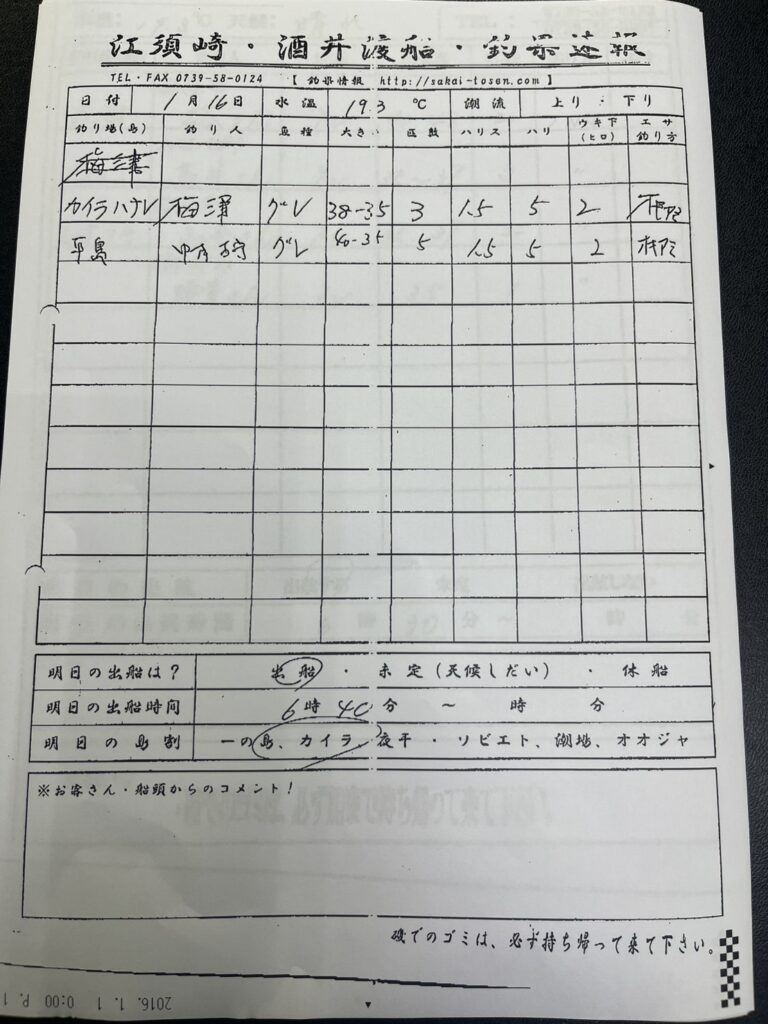 江須崎・酒井渡船・釣果速報
TEL・FAX 0739-58-0124 【 釣果情報 http://sakai-tosen.com 】
日付 1月16日 水温 19.3 ℃ 潮流 上り・下り
釣り場(島) 釣り人 魚種 大きい 匹数 ハリス ハリ ウキ下(ヒロ) エサ釣り方
梅津
カイラハナレ 梅津 グレ 38-35 3 1.5 5 2 オキアミ
平島 グレ 40-35 5 1.5 5 2 オキアミ
明日の出船は? 出船・未定(天候しだい)・休船
明日の出船時間 6時40分 ~ 時 分
明日の島割 一の島、カイラ、夜平・ソビエト、潮場、オオジャ
※お客さん・船頭からのコメント!
磯でのゴミは、必ず持ち帰って来て下さい。
2016. 1. 1 0:00 P. 1